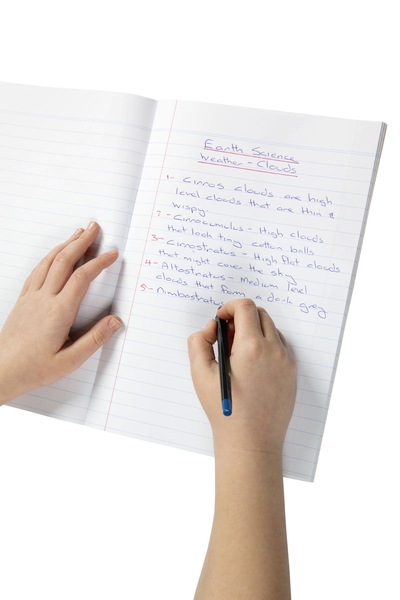 Earth Science
Weather - Clouds
1- Cirrus clouds are high
level clouds that are thin &
wispy.
2- Cirrocumulus - High clouds
that look tiny cotton balls
3- Cirrostratus - High flat clouds
that might cover the sky
4- Altostratus - Medium level
clouds that form a dark grey
5- Nimbostratus